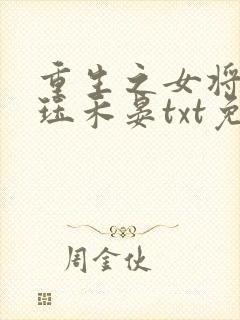 重生之女将
珏木晏txt免
周金伙